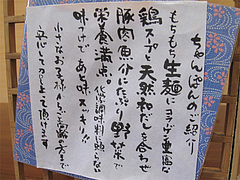 ちゃんぽんのご紹介
もちもち生麺にコラーゲン豊富な
鶏スープと天然和だしを合わせ
豚肉魚介はたっぷり野菜で
栄養満点。化学調味料に頼らない
味つけで、あと味スッキリ!!
小さなお子様からご高齢の方まで
安心してめし上って頂けます